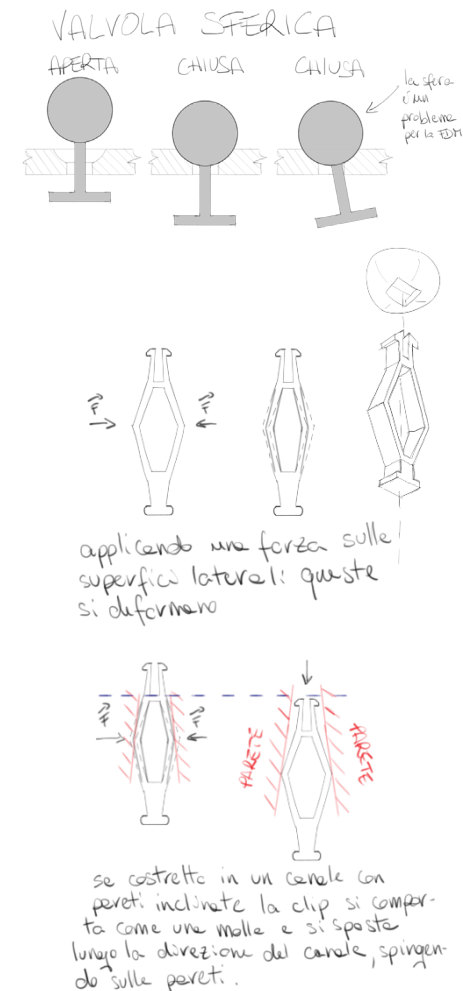 VALVOLA SFERICA
APERTA CHIUSA CHIUSA
la sfera
è un
problema
per la FDM
F F
applicando una forza sulle
superfici laterali queste
si deformano
F F
PARETE PARETE
se costretta in un canale con
pareti inclinate la clip si compor-
ta come una molla e si sposta
lungo la direzione del canale, spingen-
do sulle pareti.